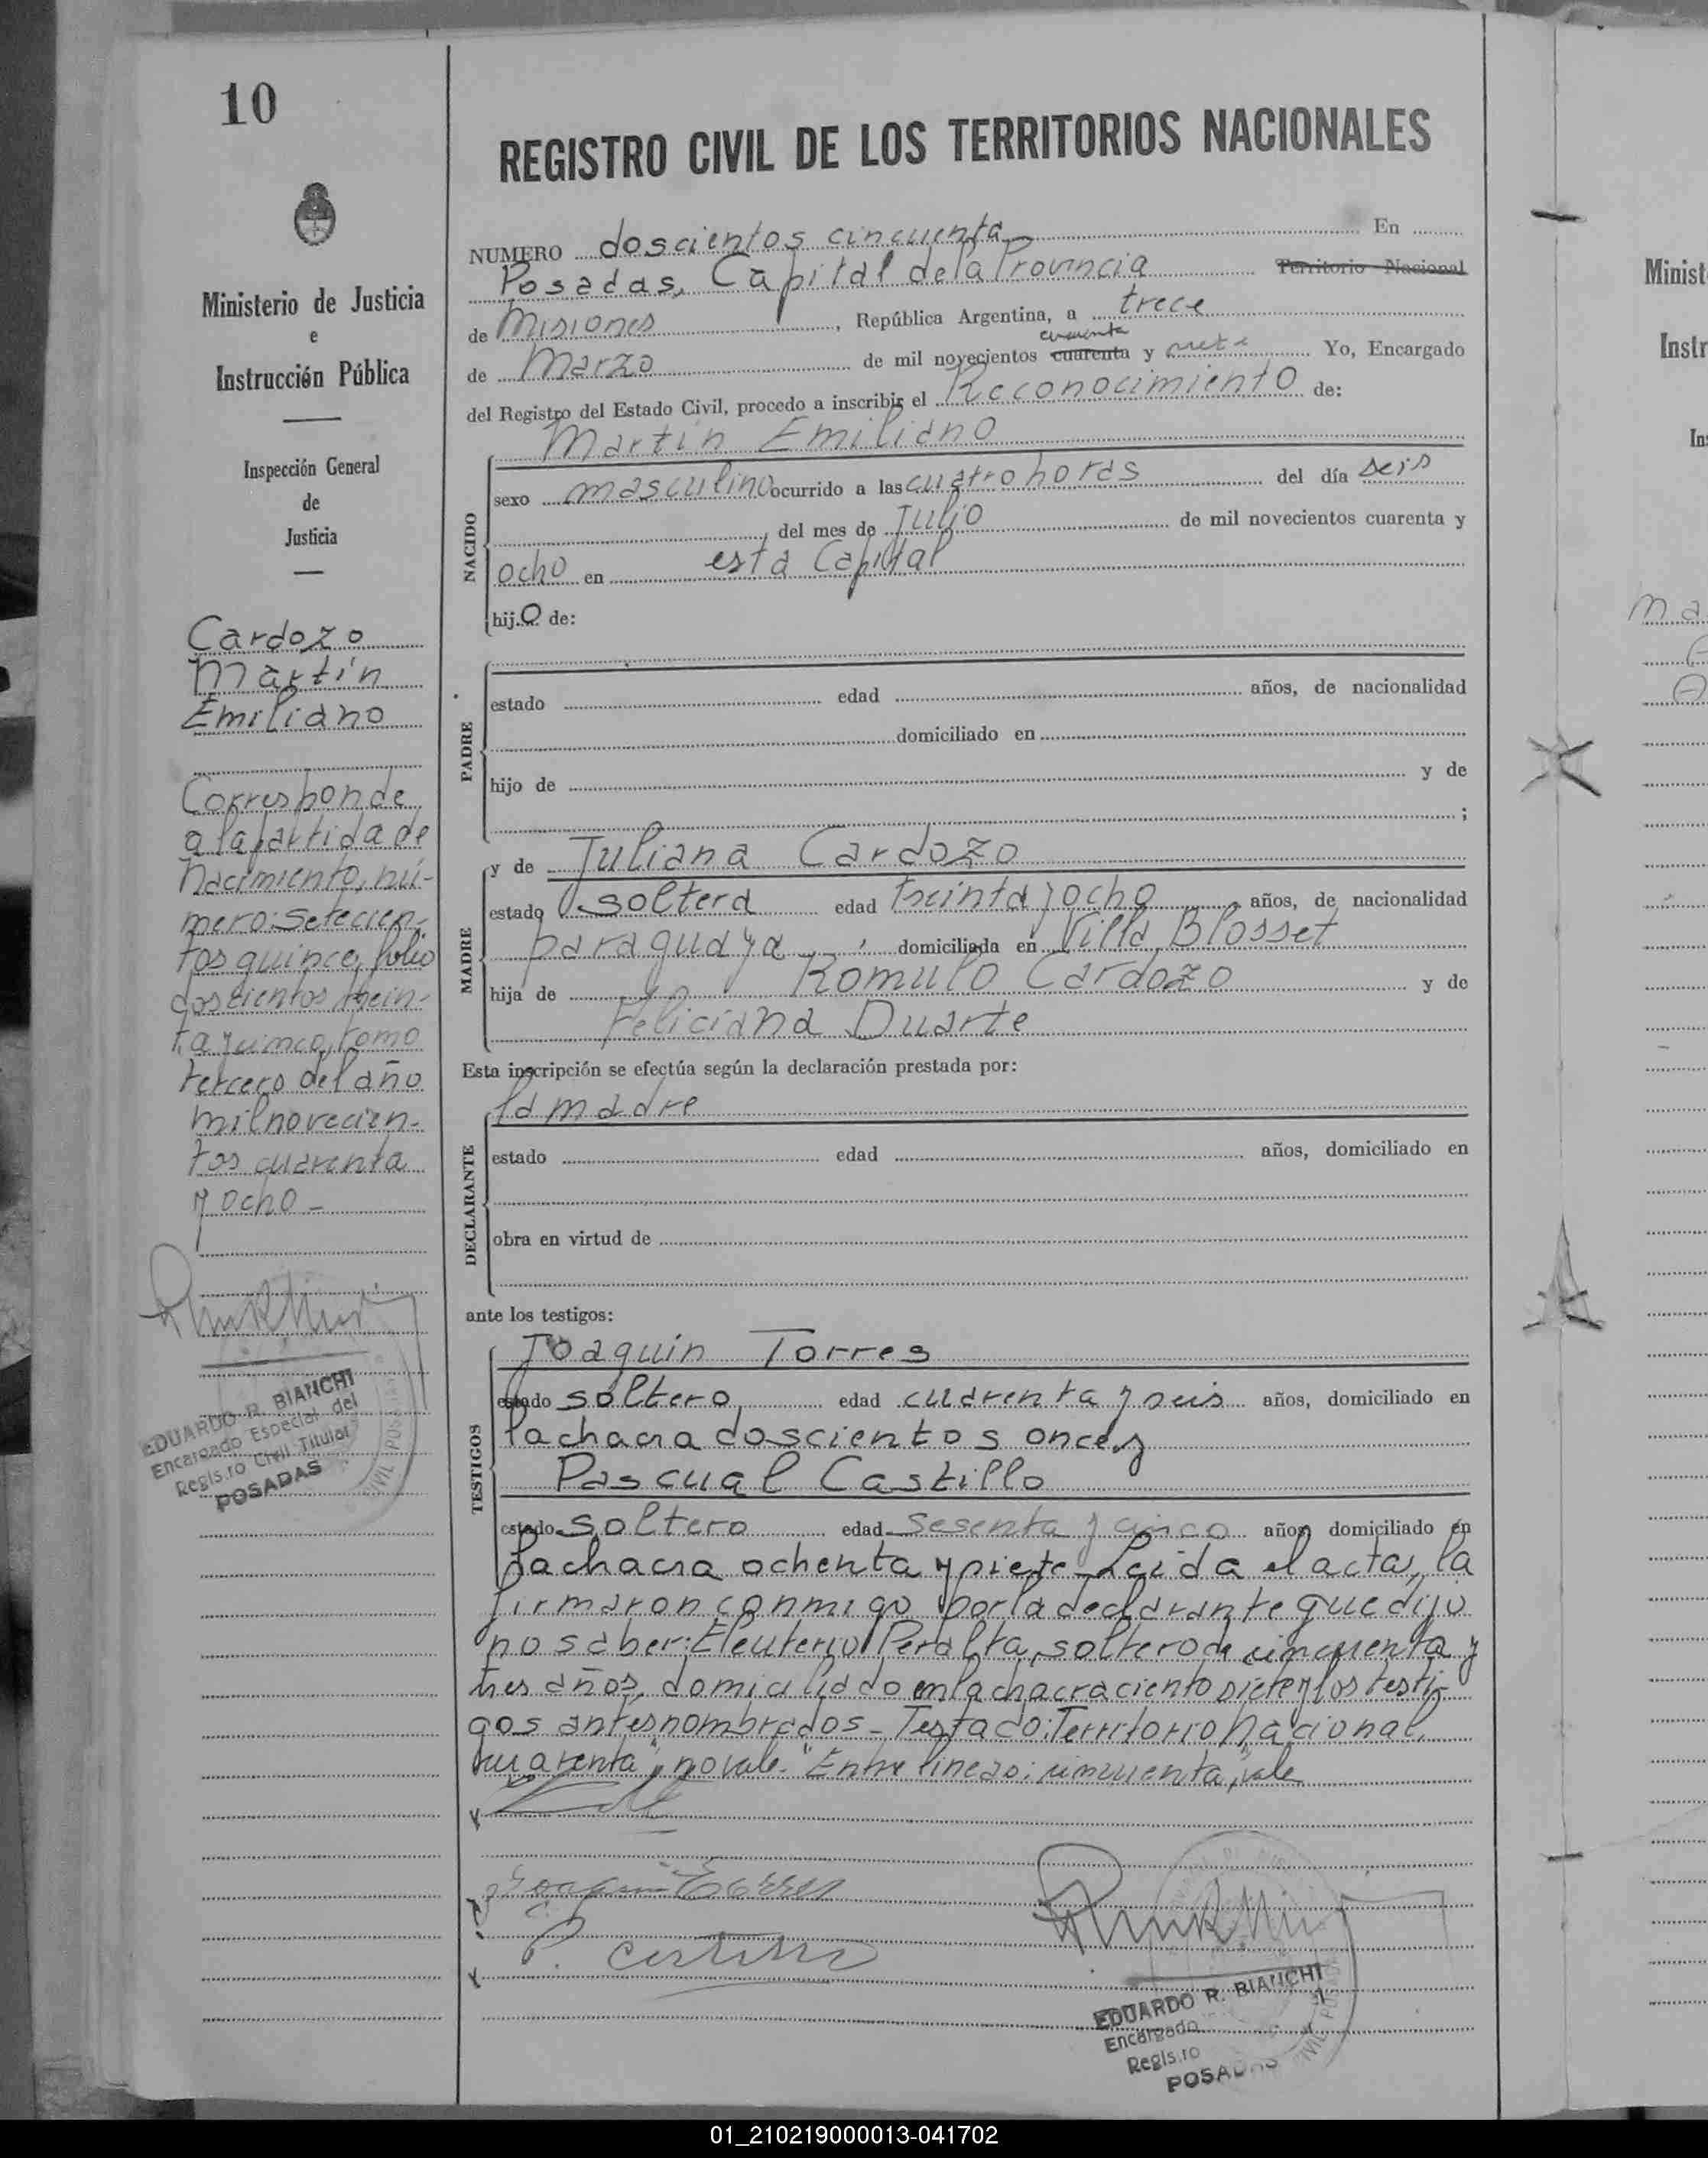 10
Ministerio de Justicia
e
Instrucción Pública
Inspección General
de
Justicia
Cardozo
Martín
Emiliano
Corresponde
a la partida de
Nacimiento, nú-
mero: setecien-
tos quince, folio
doscientos trein-
ta y cinco, tomo
tercero del año
mil novecien-
tos cuarenta
y ocho -
EDUARDO R. BIANCHI
Encargado Especial del
Regis.ro Civil Titular
POSADAS
REGISTRO CIVIL DE LOS TERRITORIOS NACIONALES
NUMERO doscientos cincuenta En
Posadas, Capital de la Provincia Territorio Nacional
de Misiones, República Argentina, a trece
cincuenta
de Marzo de mil novecientos cuarenta y siete Yo, Encargado
del Registro del Estado Civil, procedo a inscribir el Reconocimiento de:
Martín Emiliano
NACIDO
sexo masculino ocurrido a las cuatro horas del día seis
, del mes de Julio de mil novecientos cuarenta y
ocho en esta Capital
hij.o de:
PADRE
estado edad años, de nacionalidad
domiciliado en
hijo de y de
;
MADRE
y de Juliana Cardozo
estado soltera edad treinta y ocho años, de nacionalidad
paraguaya, domiciliada en Villa Blosset
hija de Romulo Cardozo y de
Feliciana Duarte
Esta inscripción se efectúa según la declaración prestada por:
DECLARANTE
la madre
estado edad años, domiciliado en
obra en virtud de
ante los testigos:
TESTIGOS
Joaquín Torres
estado soltero, edad cuarenta y seis años, domiciliado en
la chacra doscientos once y
Pascual Castillo
estado soltero edad sesenta y cinco años, domiciliado en
la chacra ochenta y siete - Leida el acta, la
firmaron conmigo por la declarante que dijo
no saber: Eleuterio Peralta, soltero de cincuenta y
tres años, domiciliado en la chacra ciento siete y los testi-
gos antes nombrados - Testado: Territorio Nacional,
cuarenta", no vale - "Entre lineas: cincuenta, vale
Joaquin Torres
P. Castillo
EDUARDO R. BIANCHI
Encargado
Regis.ro
POSADAS
01_210219000013-041702